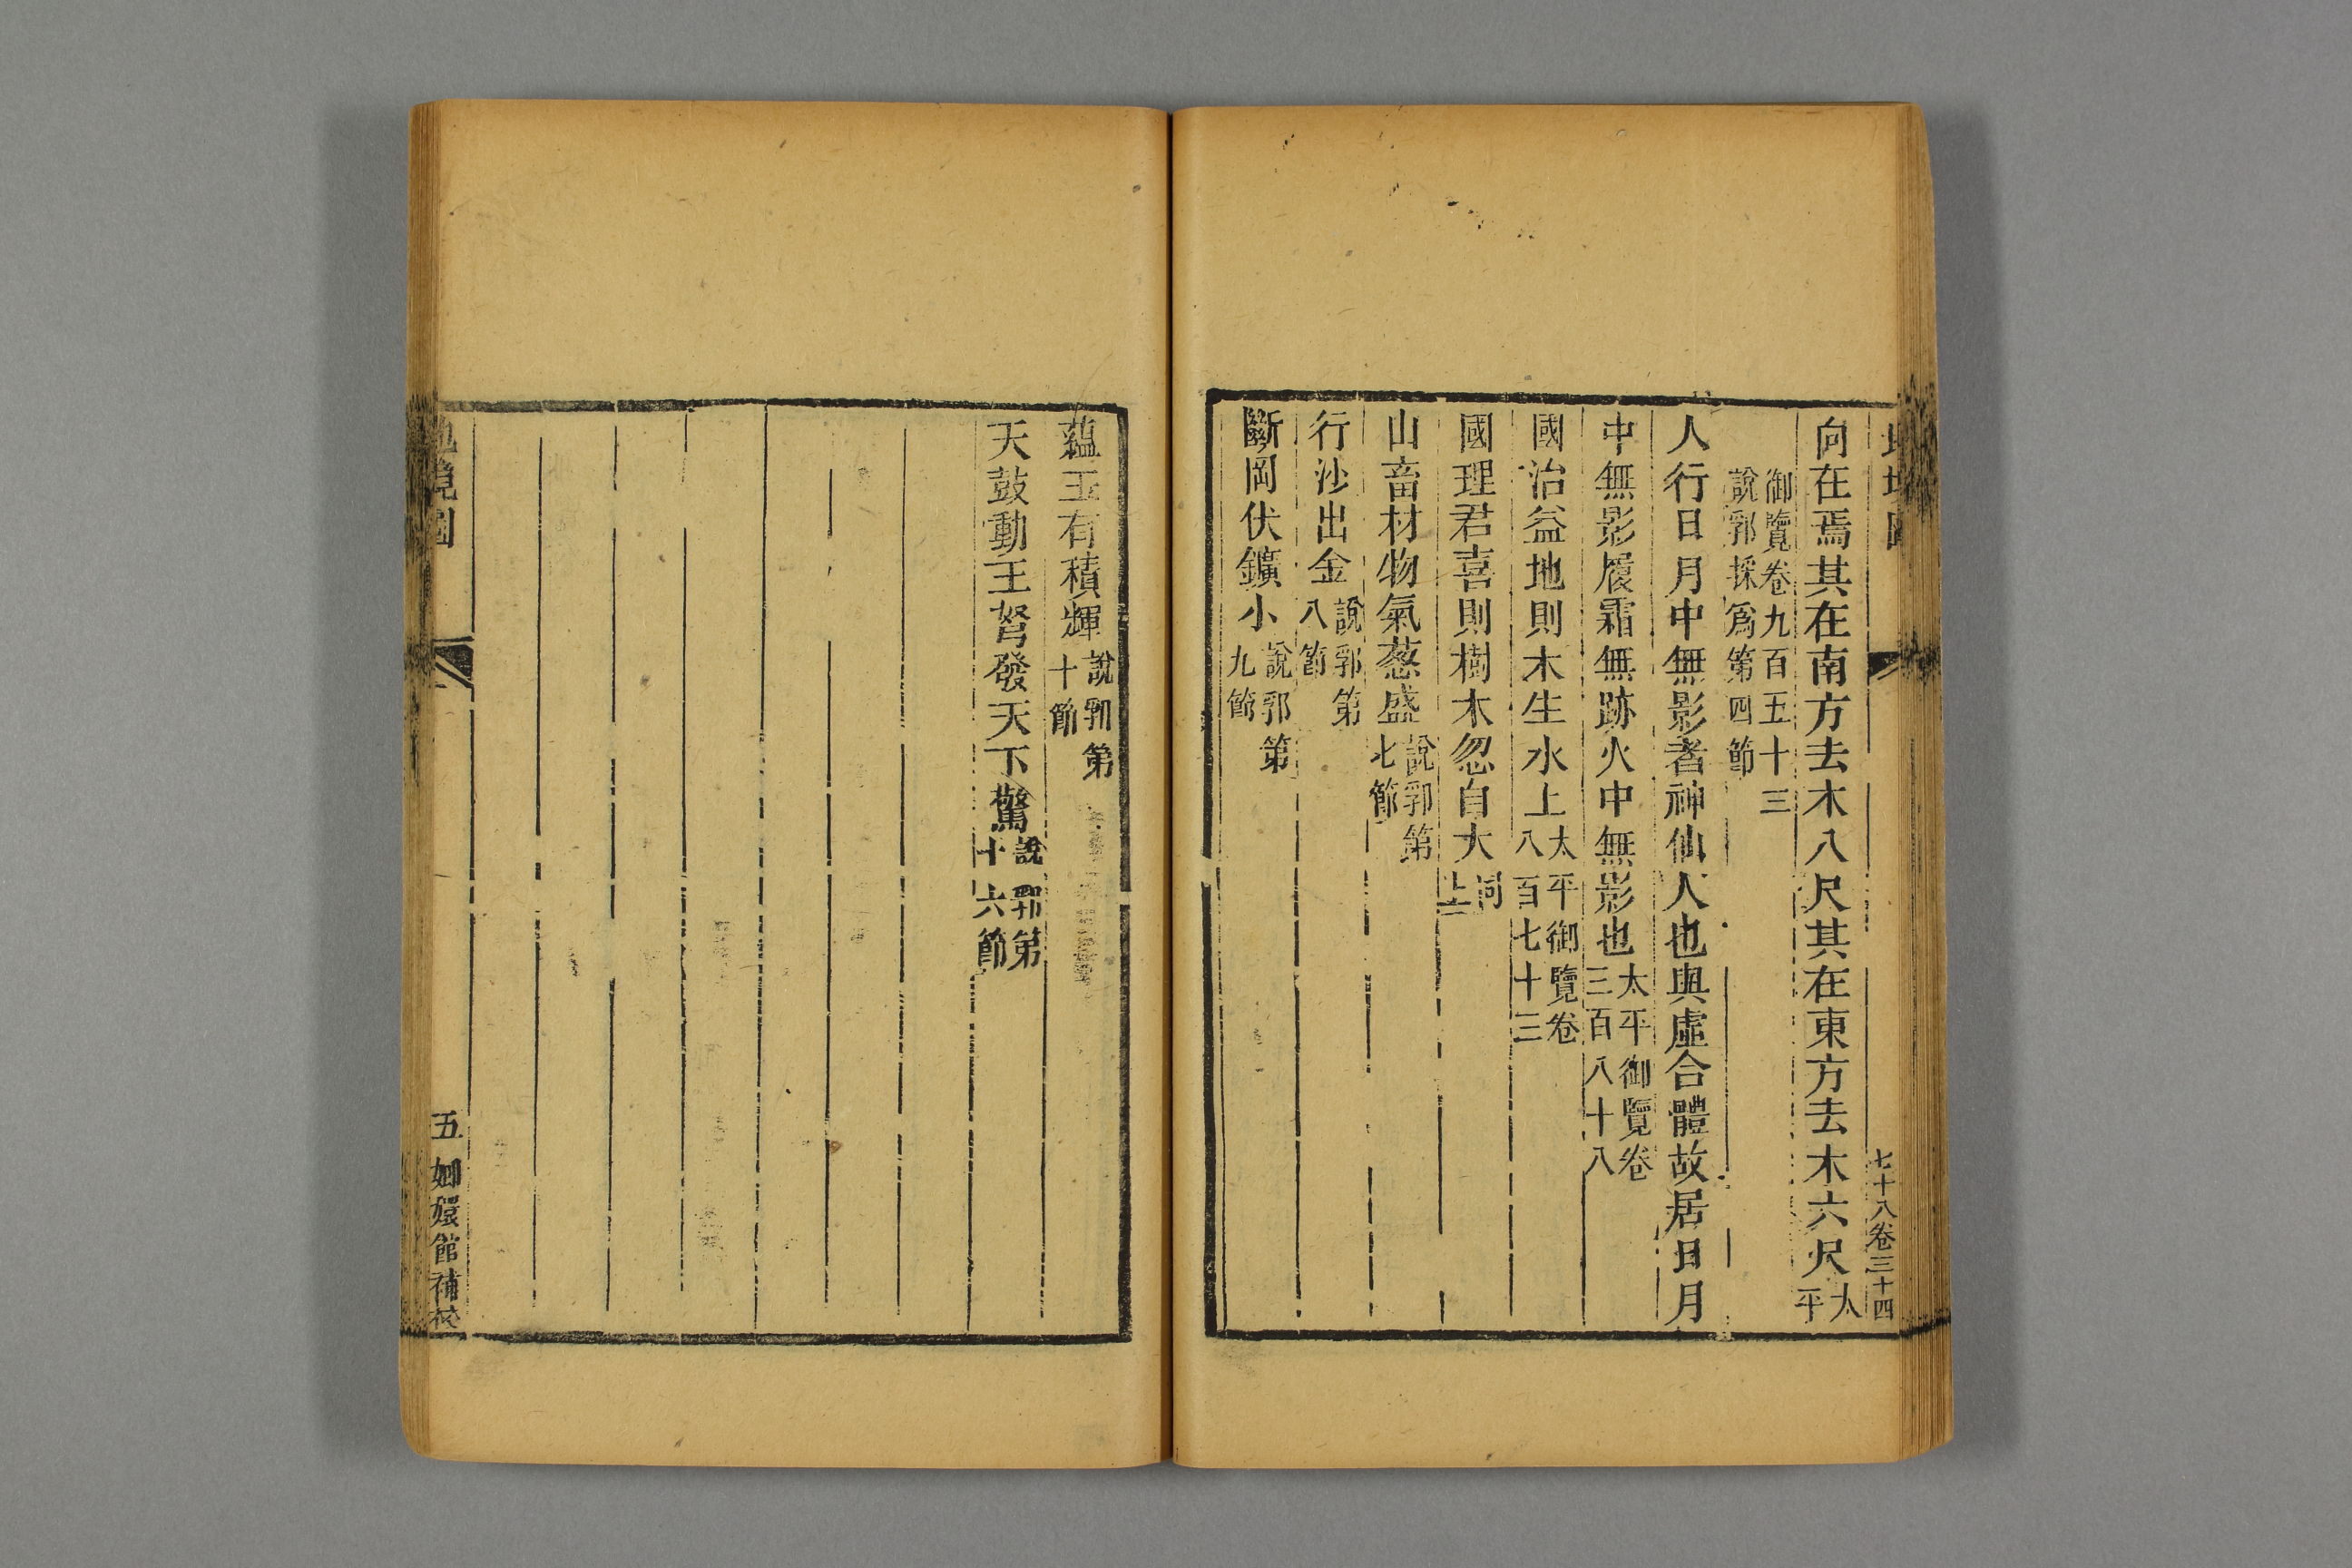 七十八卷三十四
向在焉其在南方去木八尺其在東方去木六尺太平
御覽卷九百五十三
說郛採爲第四節
人行日月中無影者神仙人也與虛合體故居日月
中無影履霜無跡火中無影也太平御覽卷三百八十八
國治益地則木生水上太平御覽卷八百七十三
國理君喜則樹木忽自大同上
山畜材物氣葱盛說郛第七節
行沙出金說郛第八節
斷岡伏鑛小說郛第九節
蘊玉有積輝說郛第十節
天鼓動王弩發天下驚說郛第十六節
地境圖
五
嫏嬛館補校